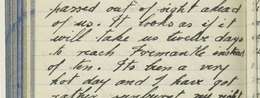 passed out of sight ahead
of us. It looks as if it
will take us twelve days
to reach Fremantle instead
of ten. Its been a very
hot day and I have got
rather sunburnt my right